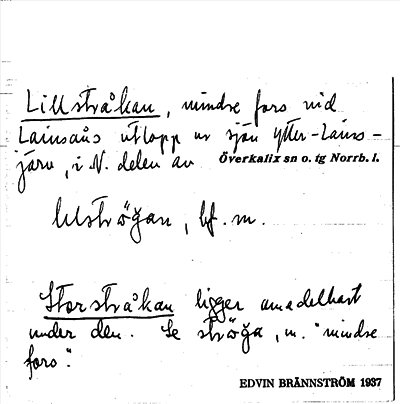 Lillstråkan, mindre fors vid
Lainsåns utlopp ur sjön Ytter-Lains-
järv, i N. delen av Överkalix sn o. tg Norrb. l.
lilströ̌gan, bf. m.
Storstråkan ligger omedelbart
under den. Se strö̌ga, m. "mindre
fors".
EDVIN BRÄNNSTRÖM 1937